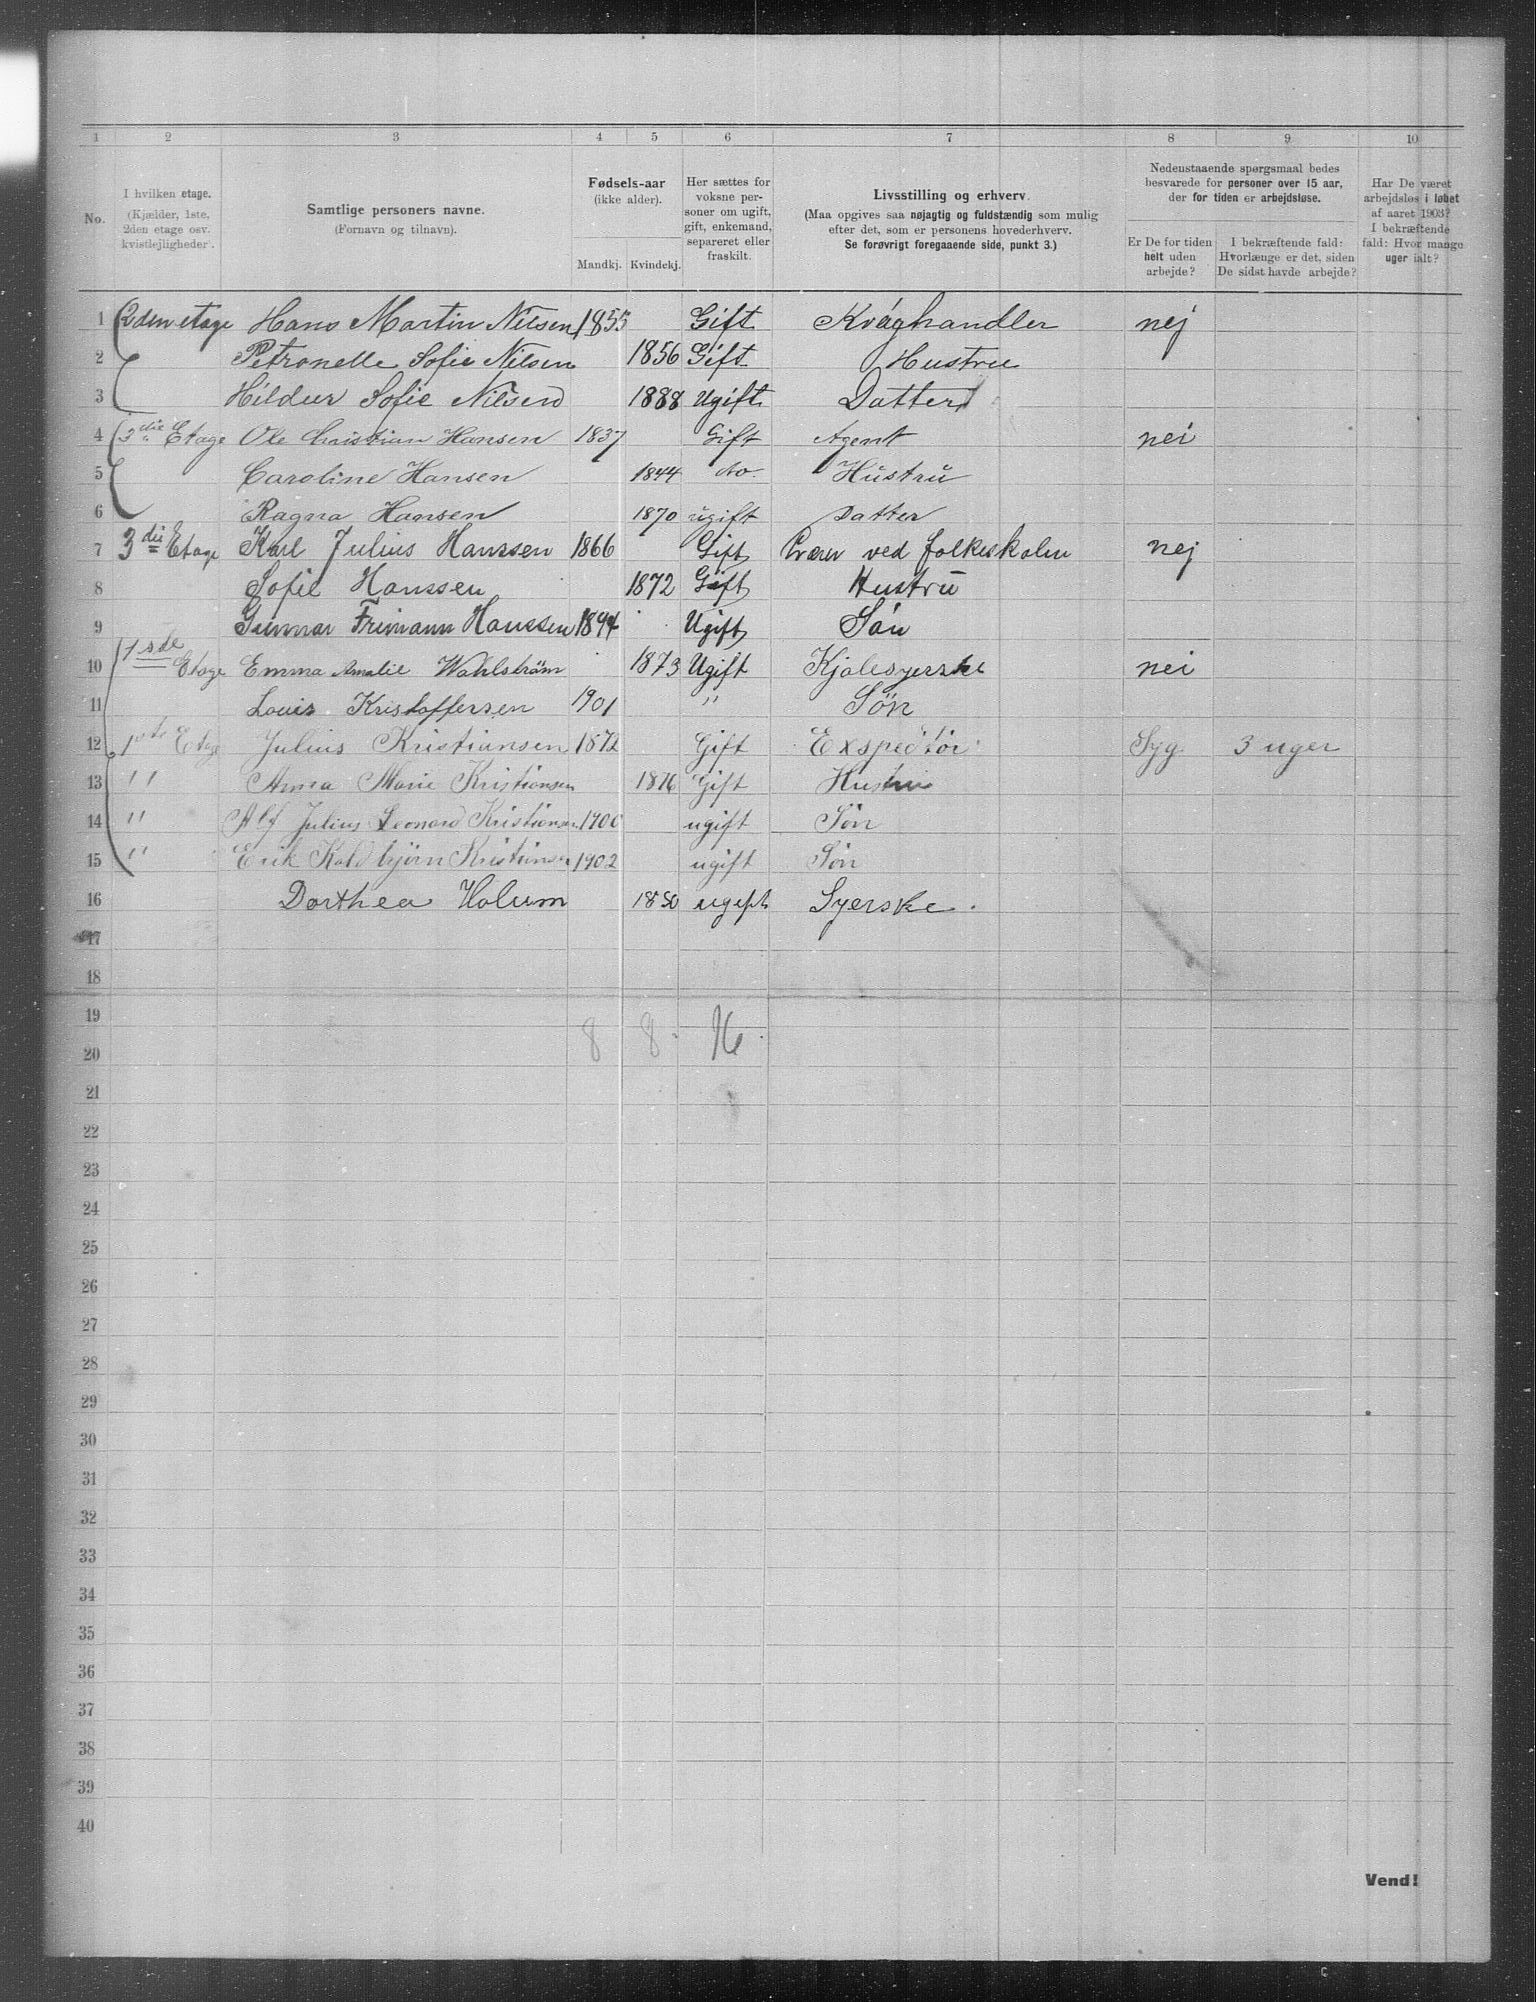 1 2 3 4 5 6 7 8 9 10
No.
I hvilken etage.
(Kjælder, 1ste,
2den etage osv.
kvistlejligheder.
Samtlige personers navne.
(Fornavn og tilnavn).
Fødsels-aar
(ikke alder).
Mandkj. Kvindekj.
Her sættes for
voksne per-
soner om ugift,
gift, enkemand,
separeret eller
fraskilt.
Livsstilling og erhverv.
(Maa opgives saa nøjagtig og fuldstændig som mulig
efter det, som er personens hovederhverv.
Se forøvrigt foregaaende side, punkt 3.)
Nedenstaaende spørgsmaal bedes
besvarede for personer over 15 aar,
der for tiden er arbejdsløse.
Er De for tiden
helt uden
arbejde?
I bekræftende fald:
Hvorlænge er det, siden
De sidst havde arbejde?
Har De været
arbejdsløs i løbet
af aaret 1903?
I bekræftende
fald: Hvor mange
uger ialt?
1 2den etage Hans Martin Nilsen 1855 Gift Kvæghandler nej
2 Petronelle Sofie Nilsen 1856 Gift Hustru
3 Hildur Sofie Nilsen 1888 Ugift Datter
4 3die Etage Ole Christian Hansen 1837 Gift Agent nei
5 Caroline Hansen 1844 do. Hüstrü
6 Ragna Hansen 1870 ugift Datter
7 3die Etage Karl Julius Hanssen 1866 Gift Lærer ved folkeskolen nej
8 Sofie Hanssen 1872 Gift Hustrü
9 Gunnar Frimann Hanssen 1894 Ugift Søn
10 1ste Etage Emma Amalie Wahlstrøm 1873 Ugift Kjolesyerske nei
11 Louis Kristoffersen 1901 " Søn
12 1ste Etage Julius Kristiansen 1872 Gift Expeditör Syg 3 uger
13 " Anna Marie Kristiansen 1876 Gift Hustru
14 " Alf Julius Leonard Kristiansen 1900 ugift Søn
15 " Erik Kristiansen 1902 ugift Søn
16 Dorthea Holum 1850 ugift Syerske.
17
18
19
8 8 16
20
21
22
23
24
25
26
27
28
29
30
31
32
33
34
35
36
37
38
39
40
Vend!